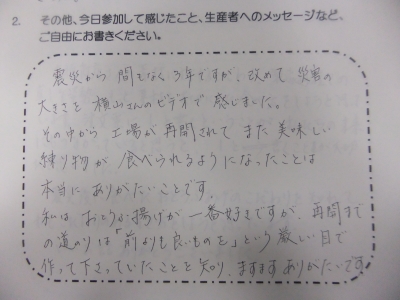 2. その他、今日参加して感じたこと、生産者へのメッセージなど、
ご自由にお書きください。
震災から間もなく3年ですが、改めて災害の
大きさを横山さんのビデオで感じました。
その中から工場が再開されてまた美味しい
練り物が食べられるようになったことは
本当にありがたいことです。
私はおとうふ揚げが一番好きですが、再開まで
の道のりは「前よりも良いものを」という厳しい目で
作って下さっていたことを知り、ますますありがたいです